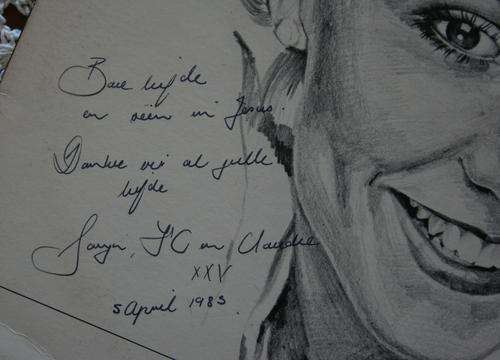 Baie liefde
en seën in Jesus.
Dankie vir al julle
liefde
en Claudie
XXV
5 April 1983